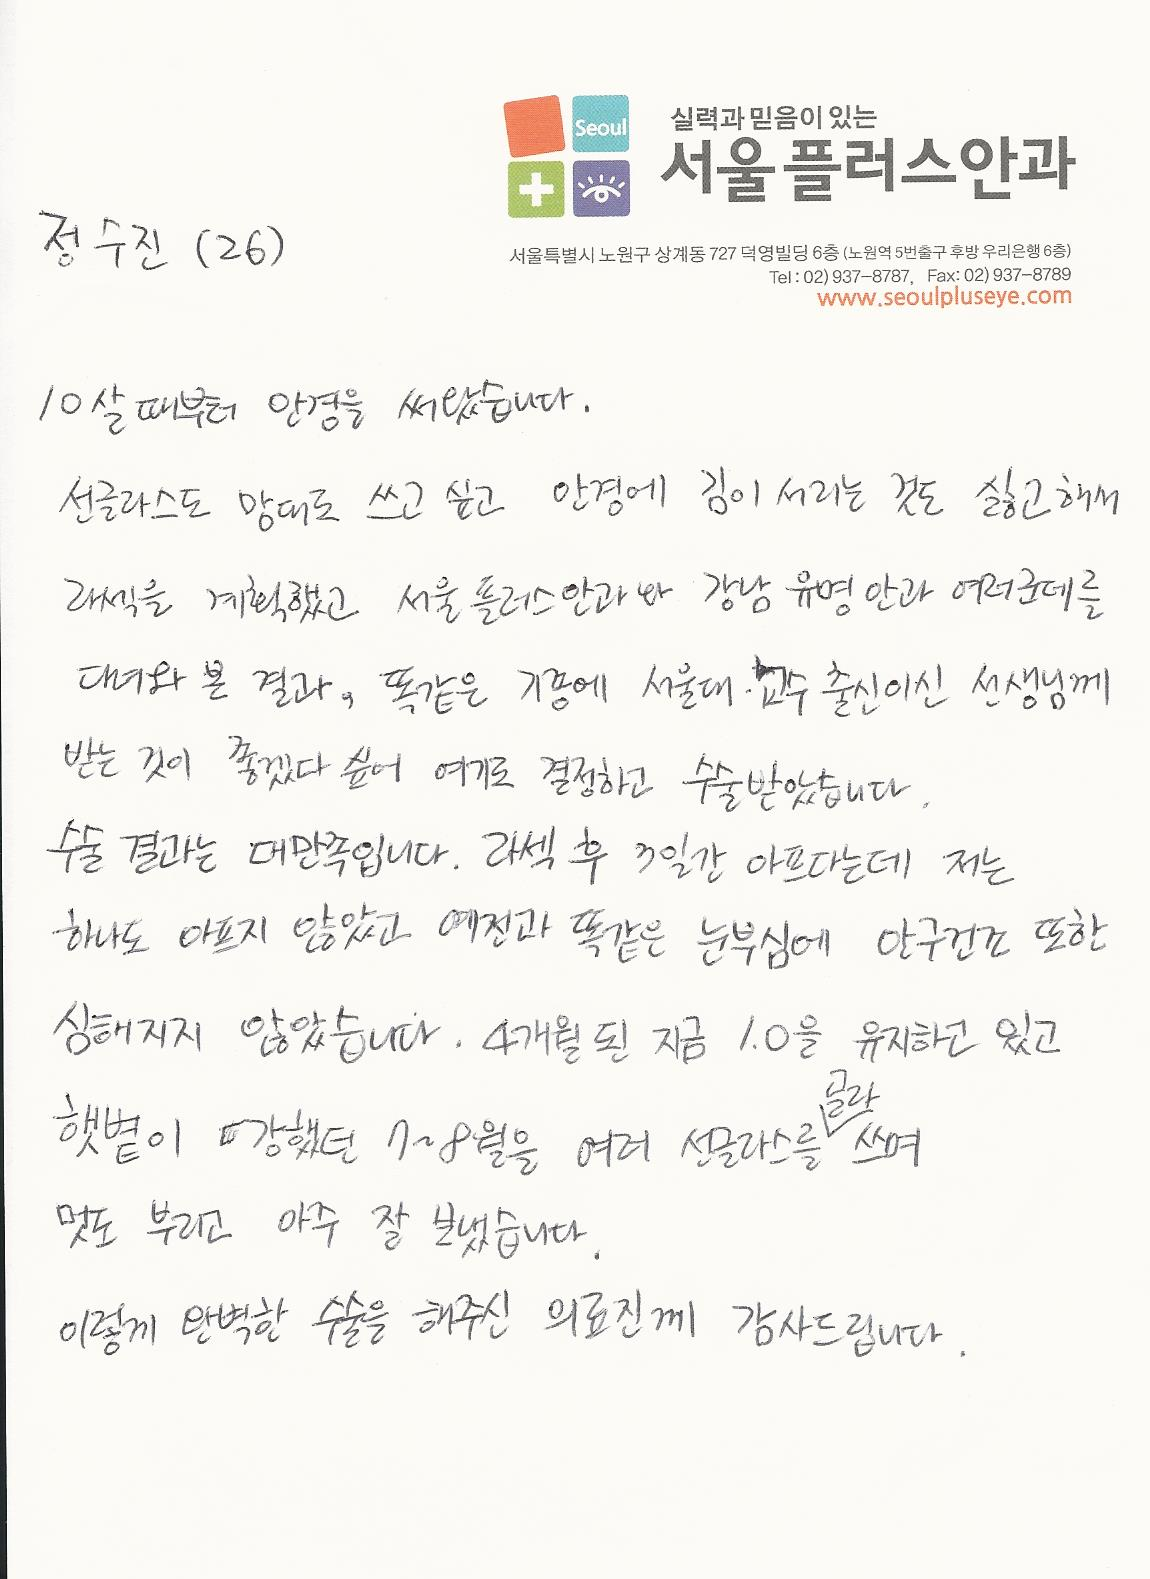 Seoul
실력과 믿음이 있는
서울플러스안과
서울특별시 노원구 상계동 727 덕영빌딩 6층 (노원역 5번출구 후방 우리은행 6층)
Tel : 02) 937-8787, Fax: 02) 937-8789
www.seoulpluseye.com
정수진 (26)
10살 때부터 안경을 써왔습니다.
선글라스도 맘대로 쓰고 싶고 안경에 김이 서리는 것도 싫고해서
라섹을 계획했고 서울플러스안과와 강남 유명 안과 여러군데를
다녀와 본 결과, 똑같은 기종에 서울대 교수 출신이신 선생님께
받는 것이 좋겠다 싶어 여기로 결정하고 수술받았습니다.
수술 결과는 대만족입니다. 라섹 후 3일간 아프다는데 저는
하나도 아프지 않았고 예전과 똑같은 눈부심에 안구건조 또한
심해지지 않았습니다. 4개월 된 지금 1.0을 유지하고 있고
햇볕이 강했던 7~8월을 여러 선글라스를 골라 쓰며
멋도 부리고 아주 잘 보냈습니다.
이렇게 완벽한 수술을 해주신 의료진께 감사드립니다.